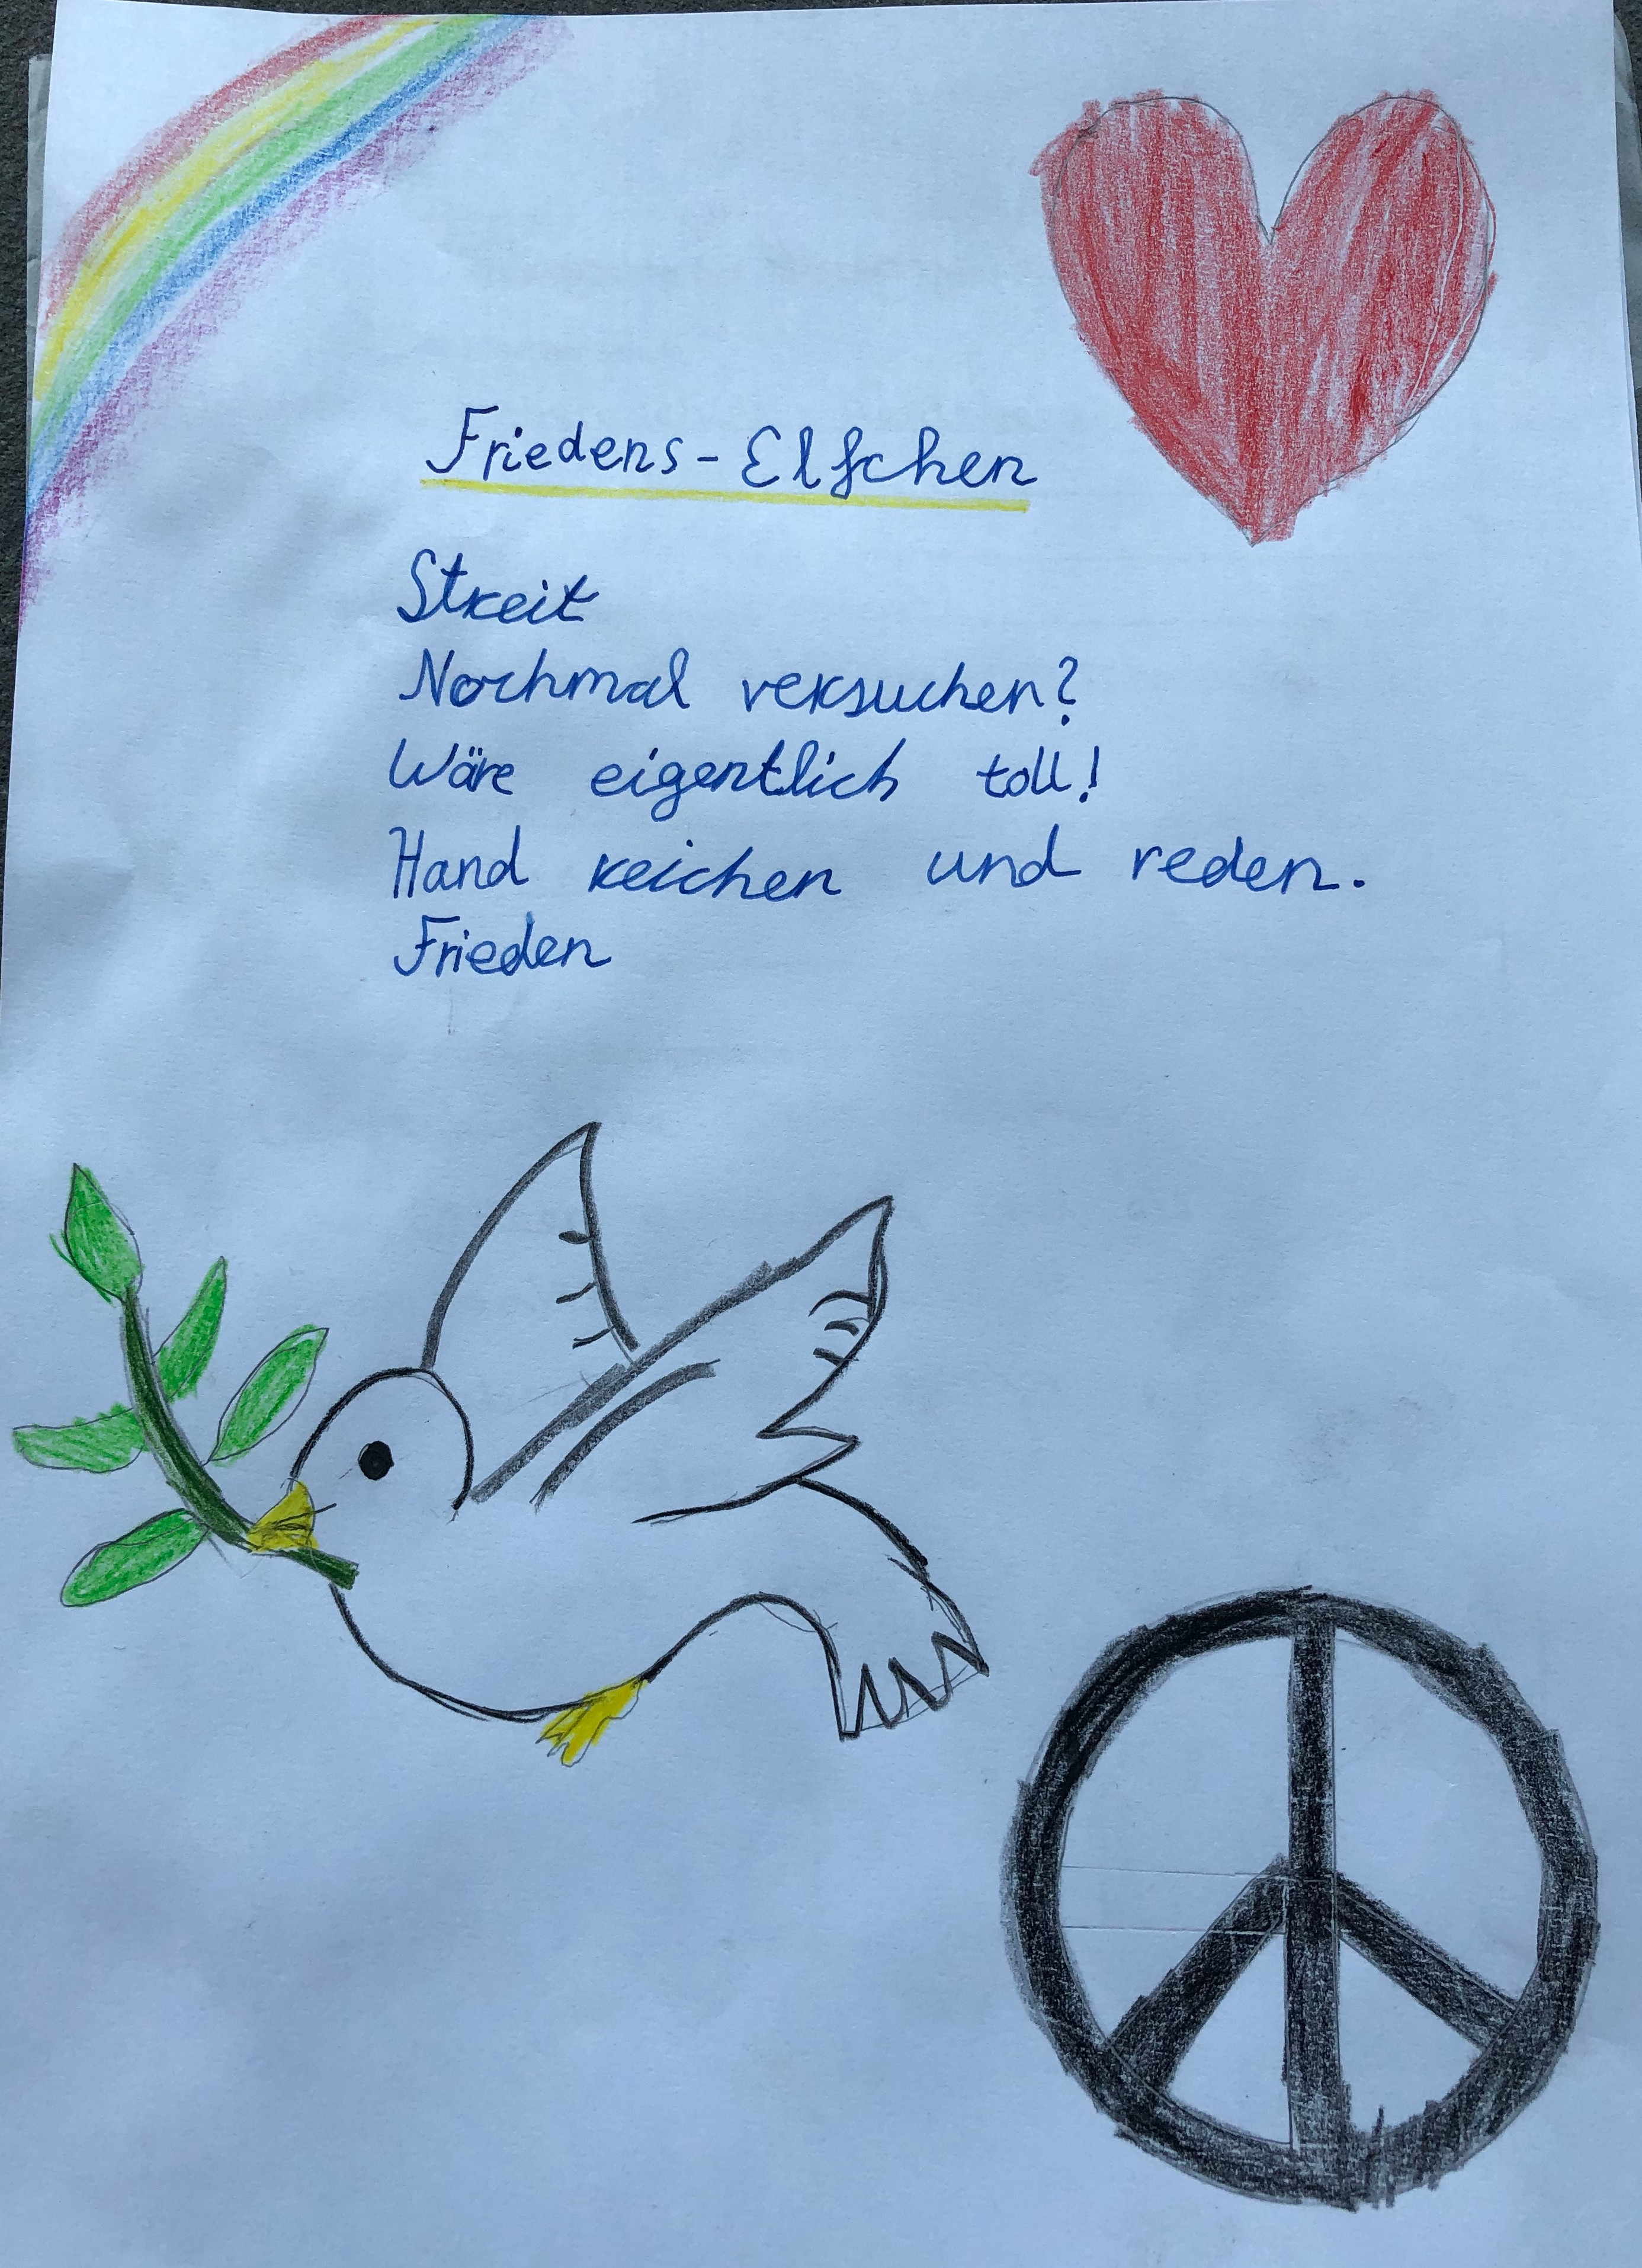 Friedens-Elfchen
Streit
Nochmal versuchen?
Wäre eigentlich toll!
Hand reichen und reden.
Frieden